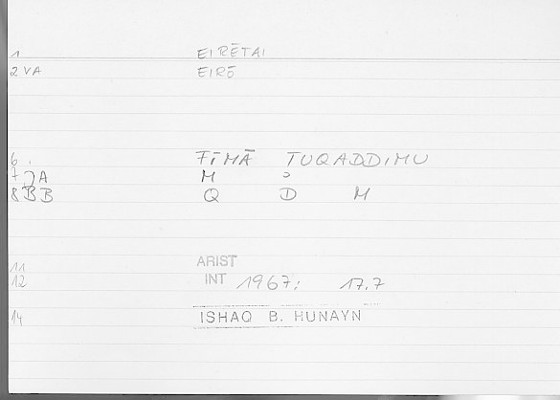 1 EIRĒTAI
2 VA EIRĒ
6. FĪMĀ TUQADDIMU
7 JA M
8 BB Q D M
11 ARIST
12 INT 1967: 17.7
14 ISHAQ B. HUNAYN